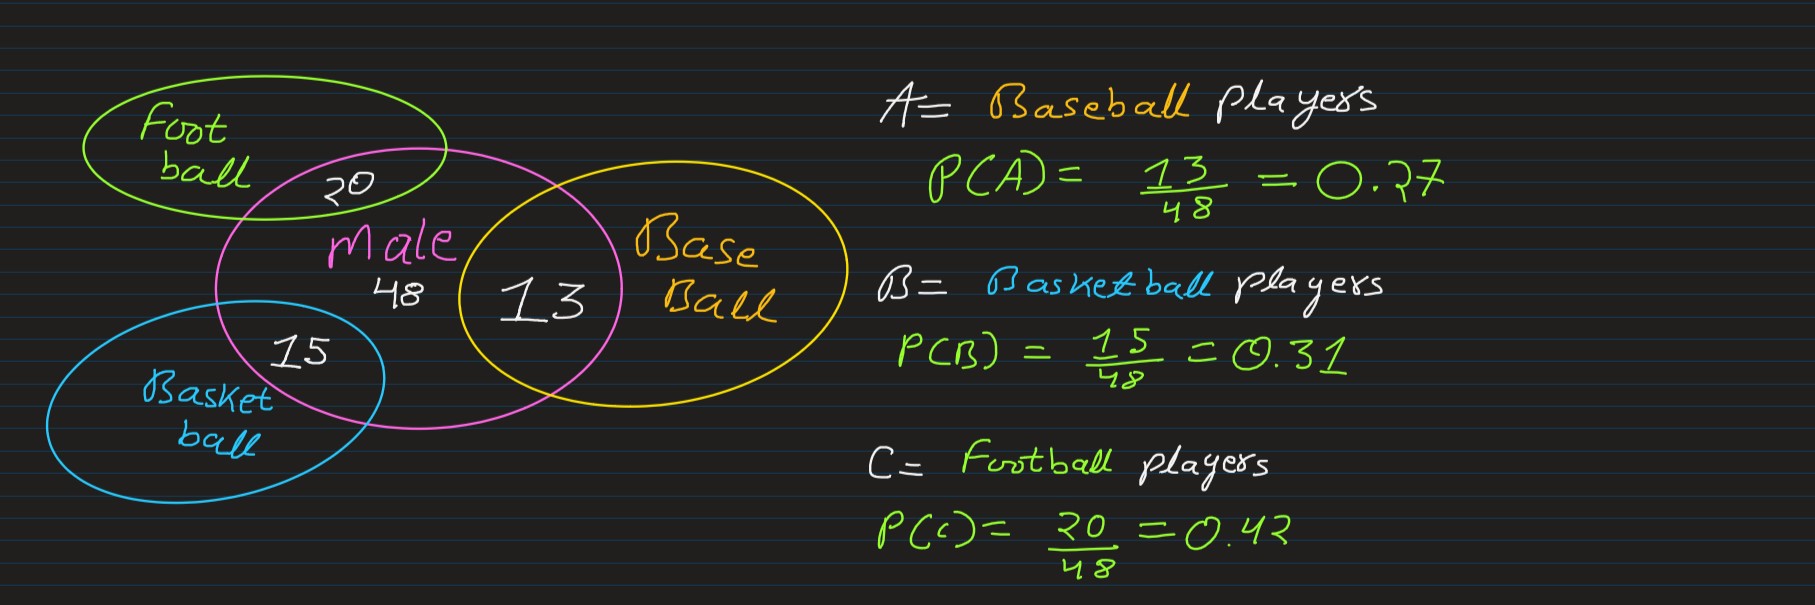 Foot
ball
20
Male
48
13
Base
Ball
15
Basket
ball
A= Baseball players
P(A)= 13/48 = 0.27
B= Basketball players
P(B) = 15/48 = 0.31
C= Football players
P(C)= 20/48 = 0.42